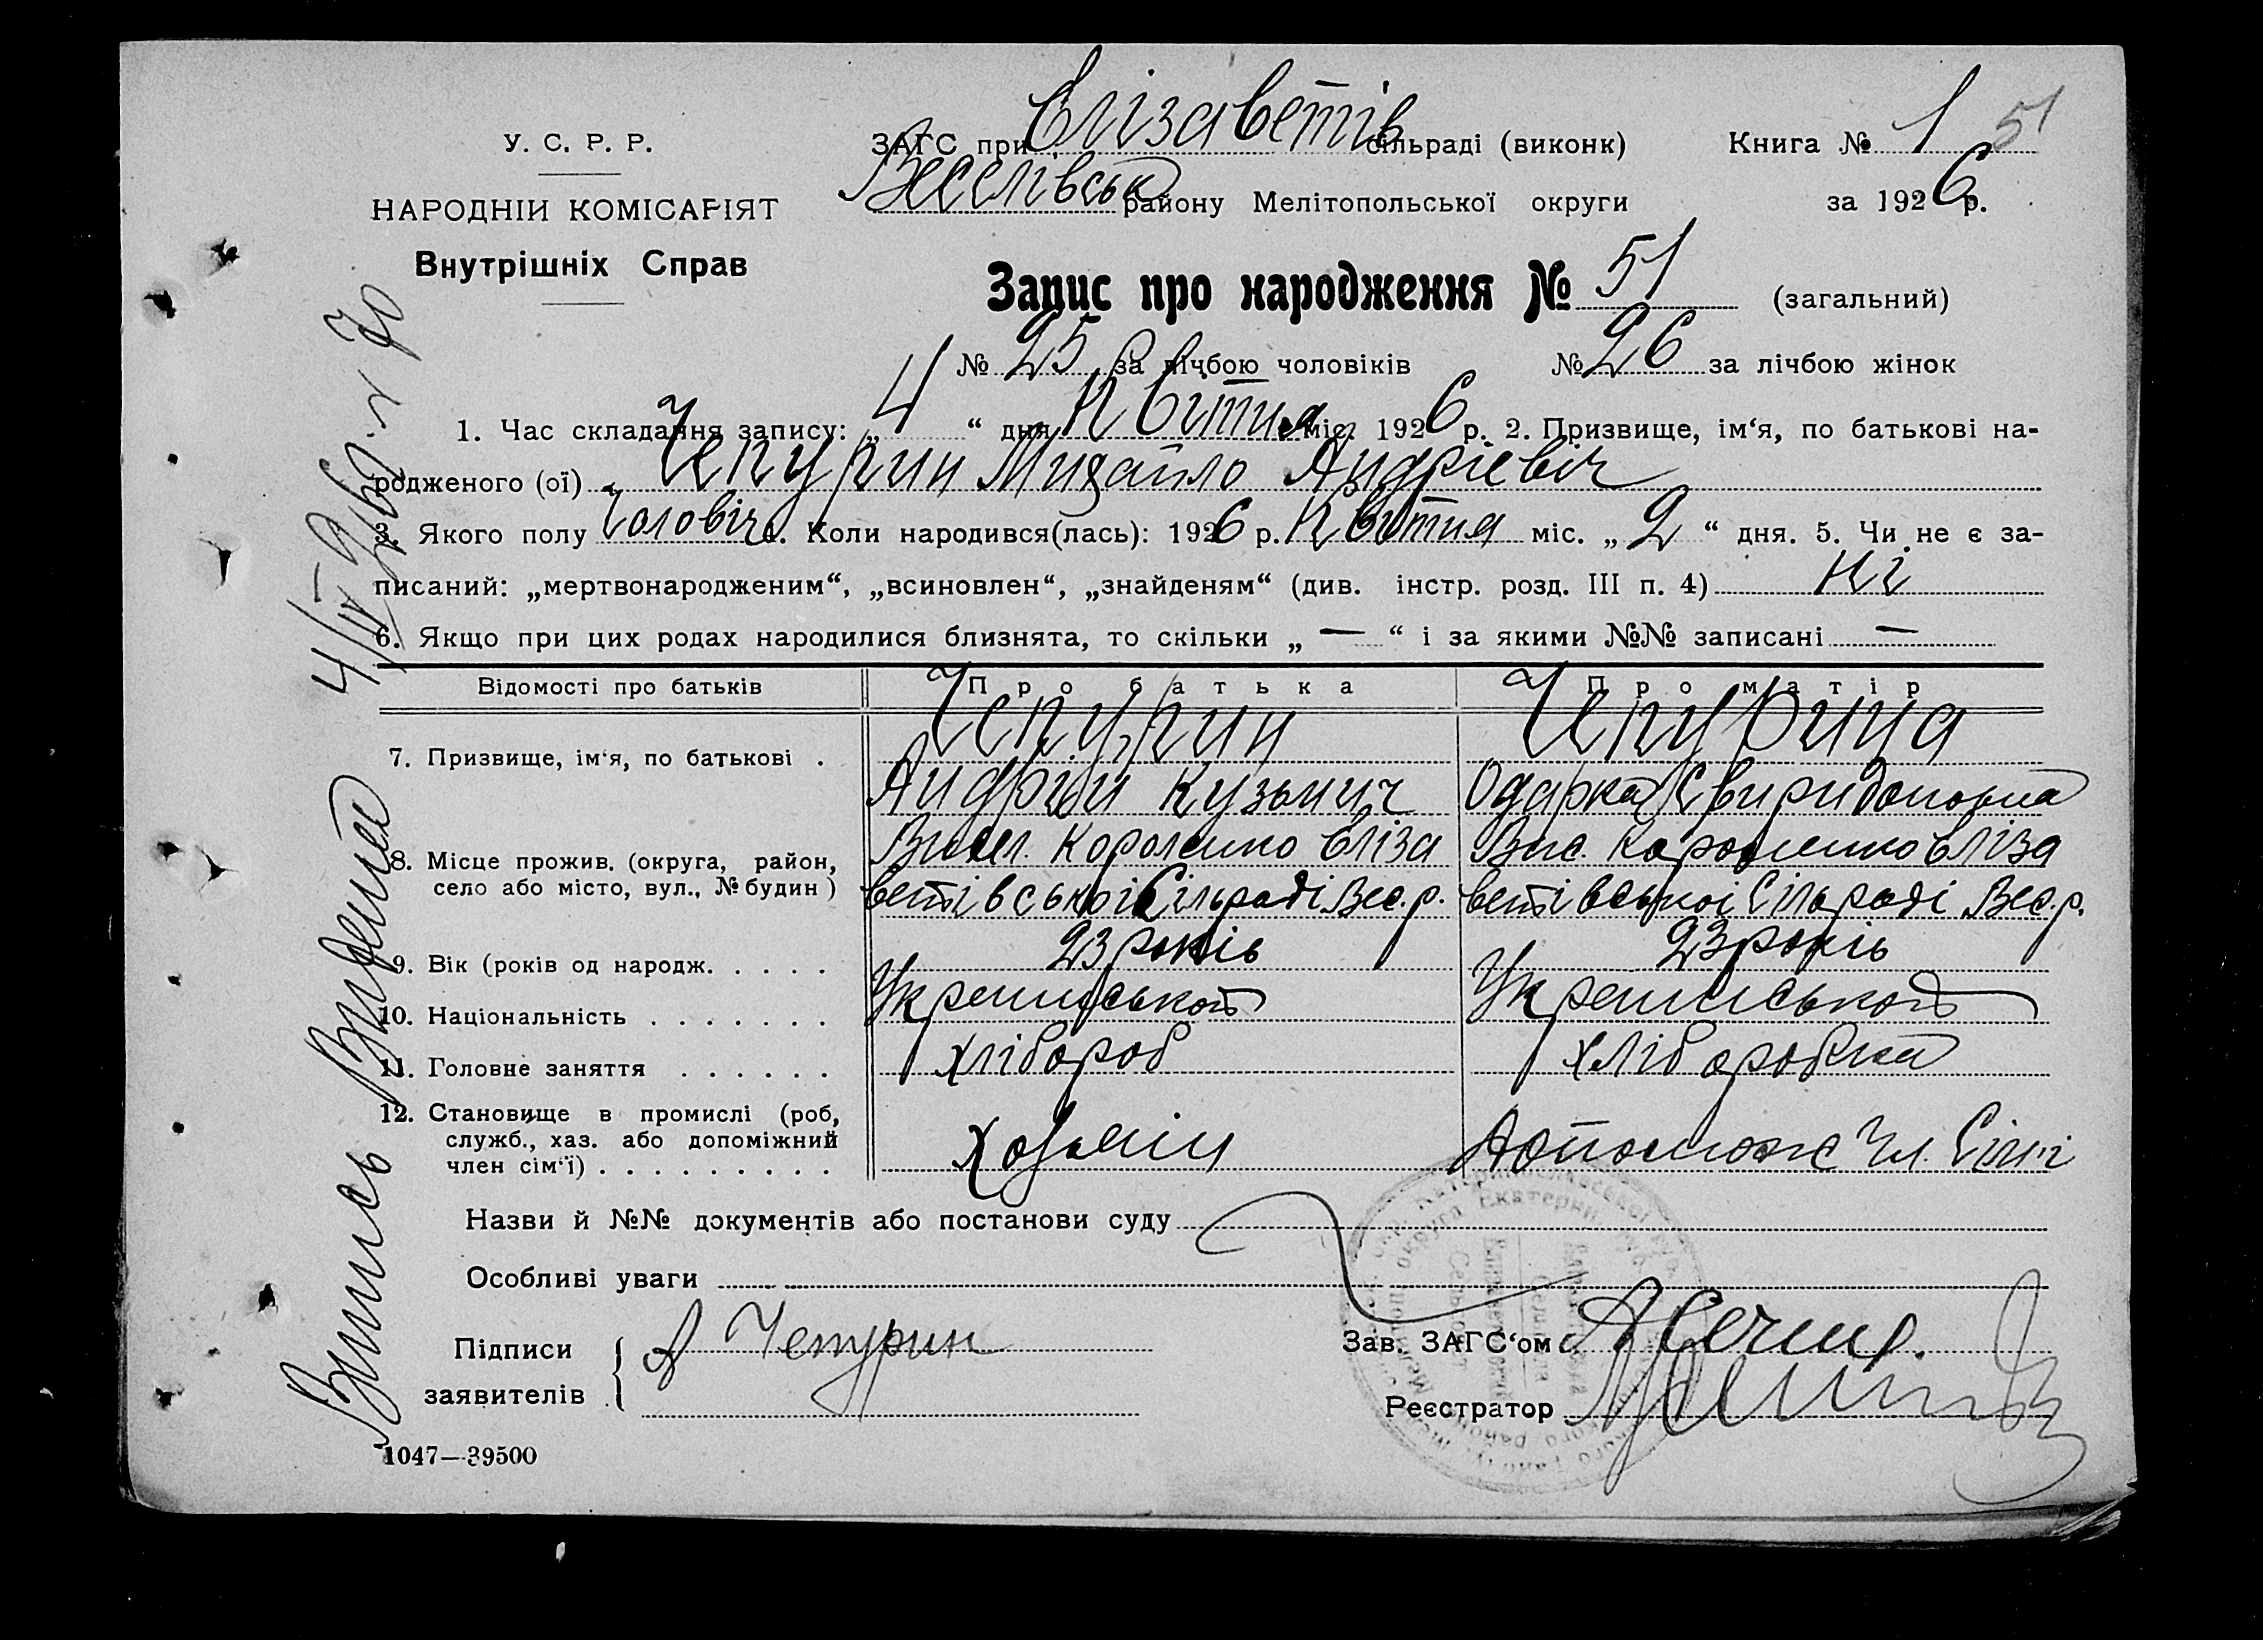 У. С. Р. Р.
НАРОДНІЙ КОМІСАРІЯТ
Внутрішніх Справ
ЗАГС при Єлізаветів сільраді (виконк)
Веселівськ району Мелітопольської округи
Книга № 1 51
за 1926 р.
Запис про народження № 51 (загальний)
№ 25 за лічбою чоловіків № 26 за лічбою жінок
1. Час складання запису: „4“ дня Квітня міс. 1926 р. 2. Призвище, ім‘я, по батькові на-
родженого (ої) Чепурин Михайло Андрієвіч
3. Якого полу Чоловіч. Коли народився(лась): 1926 р. Квітня міс. „2“ дня. 5. Чи не є за-
писаний: „мертвонародженим“, „всиновлен“, „знайденям“ (див. інстр. розд. III п. 4) Ні
6. Якщо при цих родах народилися близнята, то скільки „ — “ і за якими №№ записані —
Відомості про батьків Про батька Про матір
7. Призвище, ім‘я, по батькові . Чепурин Чепурина
Андрій Кузьмич Одарка Свиридоновна
8. Місце прожив. (округа, район, село або місто, вул., № будин) Висел. Короленко Єліза Вис. Короленко Єліза
ветівської Сільраді Вес. р. ветівської Сільраді Вес. р.
9. Вік (років од народж. . . . . 23 років 23 років
10. Національність . . . . . . . Украинської Украинської
11. Головне заняття . . . . . . Хлібороб Хлібопробка
12. Становище в промислі (роб, служб., хаз. або допоміжний член сім‘ї) . . . . . . . . . Хозяін Допомож Чл. Сімї
Назви й №№ документів або постанови суду
Особливі уваги
Підписи заявителів А Чепурин
Зав. ЗАГС‘ом
Реєстратор
1047—39500
Випись Видана 4/IV